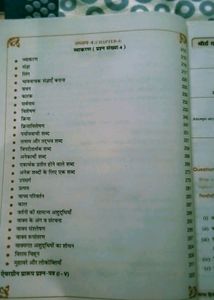 अध्याय-4 (CHAPTER-4)
व्याकरण ( प्रश्न संख्या 4 )
व्याकरण
संज्ञा
लिंग
भाववाचक संज्ञाएँ बनाना
वचन
कारक
सर्वनाम
विशेषण
क्रिया
क्रियाविशेषण
पर्यायवाची शब्द
तत्सम और तद्भव शब्द
विपरीतार्थक शब्द
अनेकार्थी शब्द
एकार्थक प्रतीत होने वाले शब्द
अनेक शब्दों के लिए एक शब्द
उपसर्ग
प्रत्यय
वाच्य परिवर्तन
काल
वर्तनी की सामान्य अशुद्धियाँ
वाक्य के अंग व संरचना
वाक्य संश्लेषण
वाक्य रूपांतरण
वाक्यगत अशुद्धियों का शोधन
विराम चिह्न
मुहावरे और लोकोक्तियाँ
प्रारूप प्रश्न-पत्र (I - V)
Question